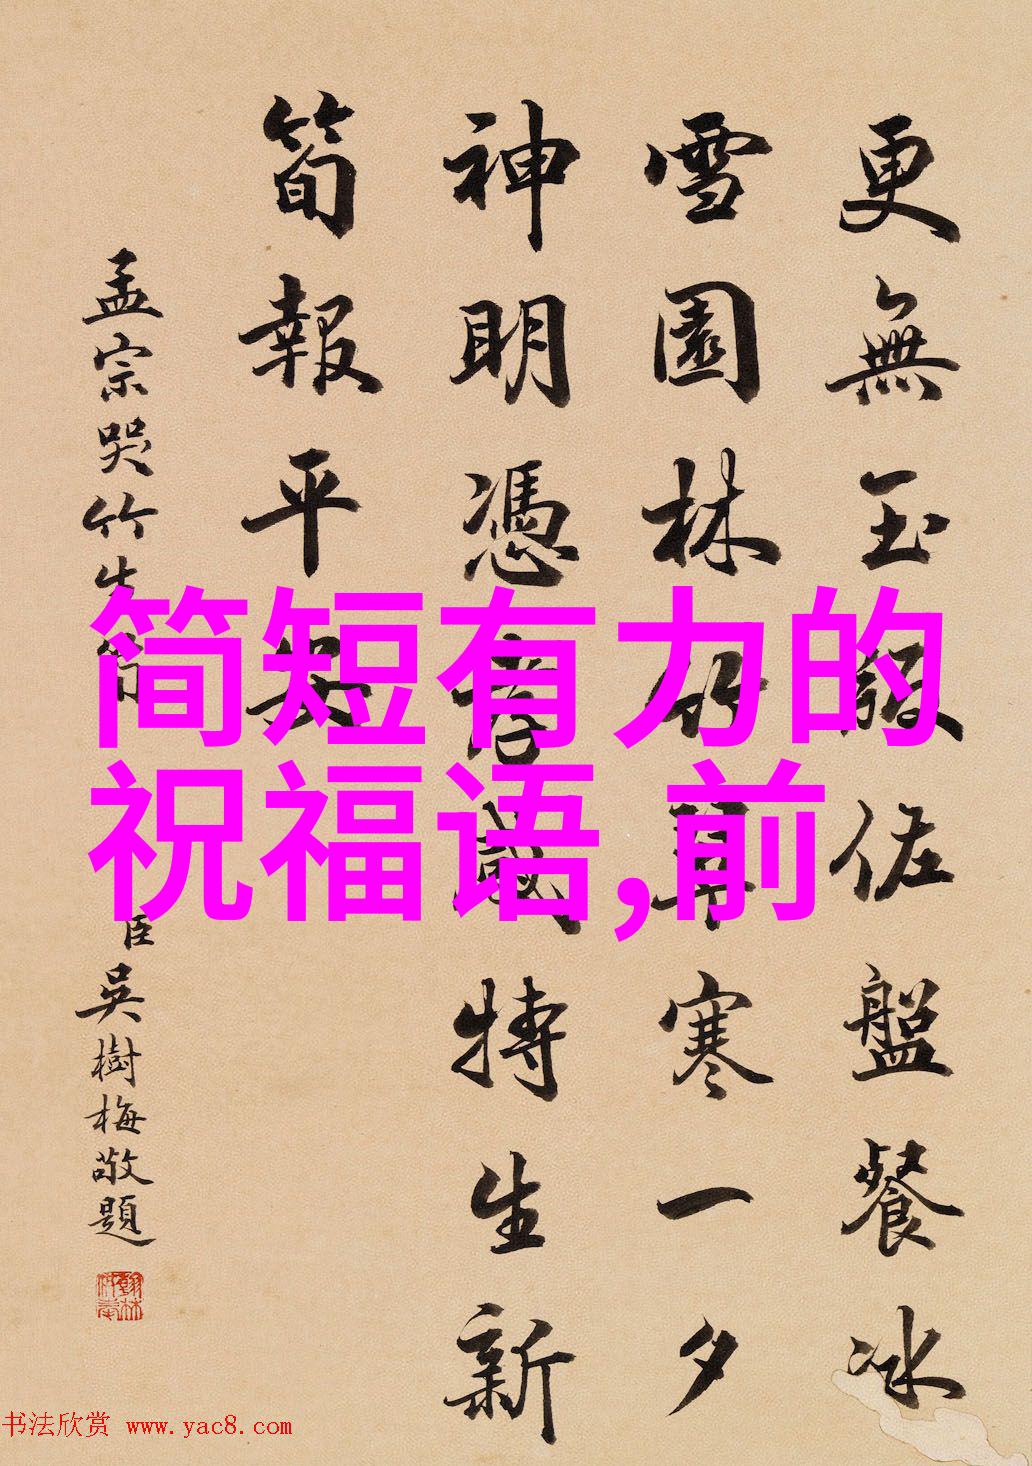 更無玉版佐盤餐冰
雪園林竹尋寒一夕
神明憑孝感特生新
筍報平安
孟宗哭竹生筍
臣吳樹梅敬題
简短有力的
祝福语,前
书法欣赏 www.yac8.com